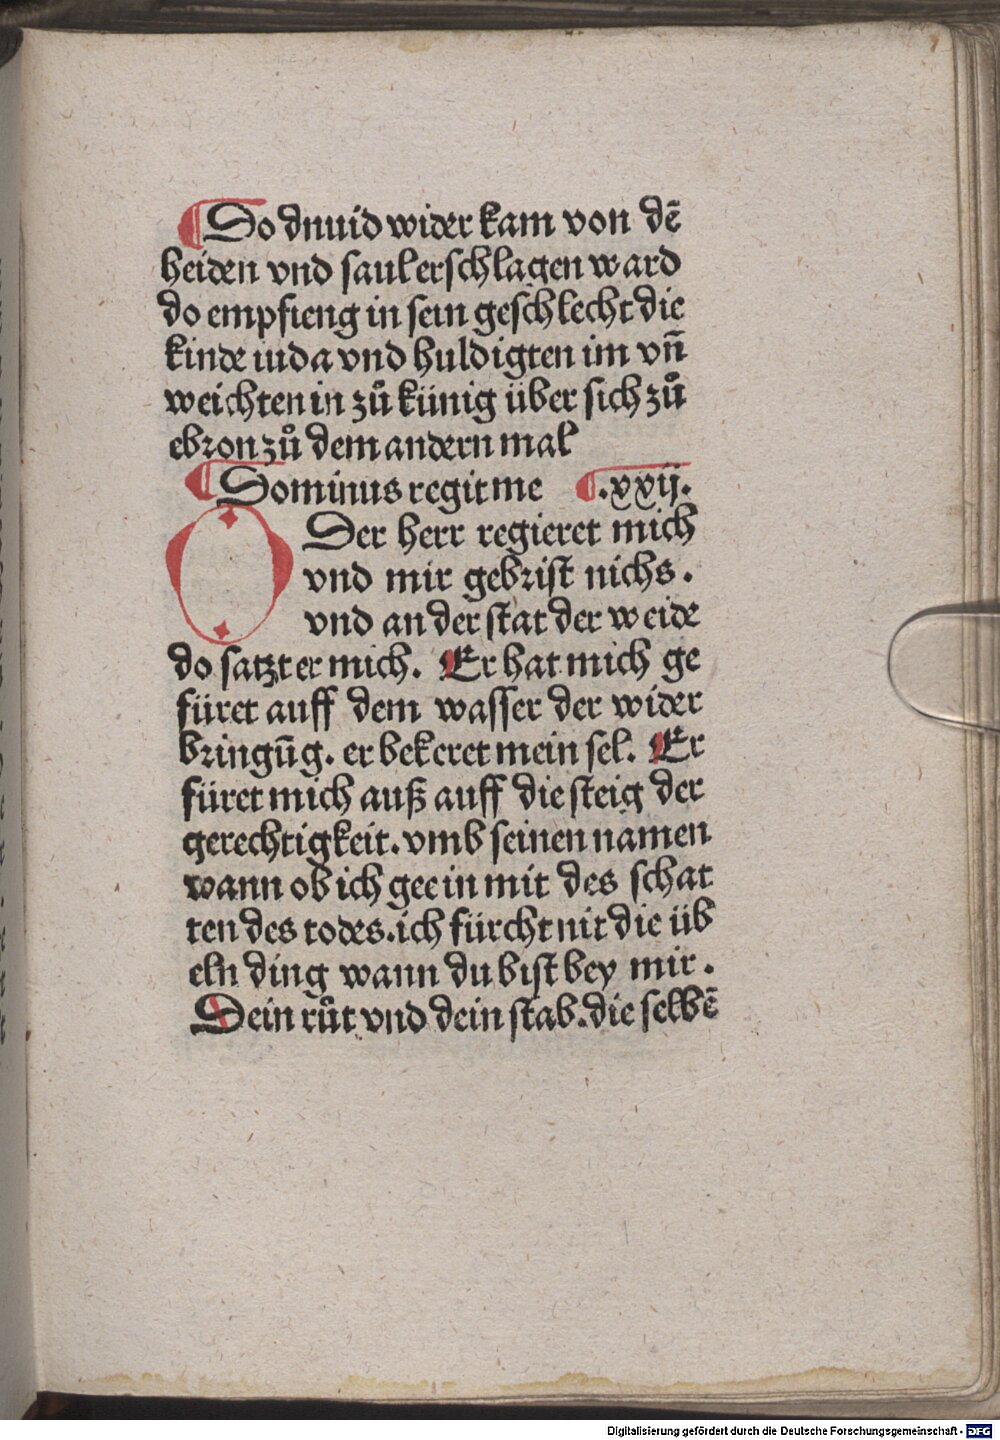 Do dnuid wider kam von dē
heiden vnd saul erschlagen ward
do empfieng in sein geschlecht die
kinde iuda vnd huldigten im vn̄
weichten in zů künig über sich zů
ebron zů dem andern mal
Dominus regit me .xxij.
O Der herr regieret mich
vnd mir gebrist nichs.
vnd an der stat der weide
do satzt er mich. Er hat mich ge
füret auff dem wasser der wider
bringūg. er bekeret mein sel. Er
füret mich auß auff die steig der
gerechtigkeit. vmb seinen namen
wann ob ich gee in mit des schat
ten des todes. ich fürcht nit die üb
eln ding wann du bist bey mir.
Dein růt vnd dein stab. die selbē
Digitalisierung gefördert durch die Deutsche Forschungsgemeinschaft - DFG